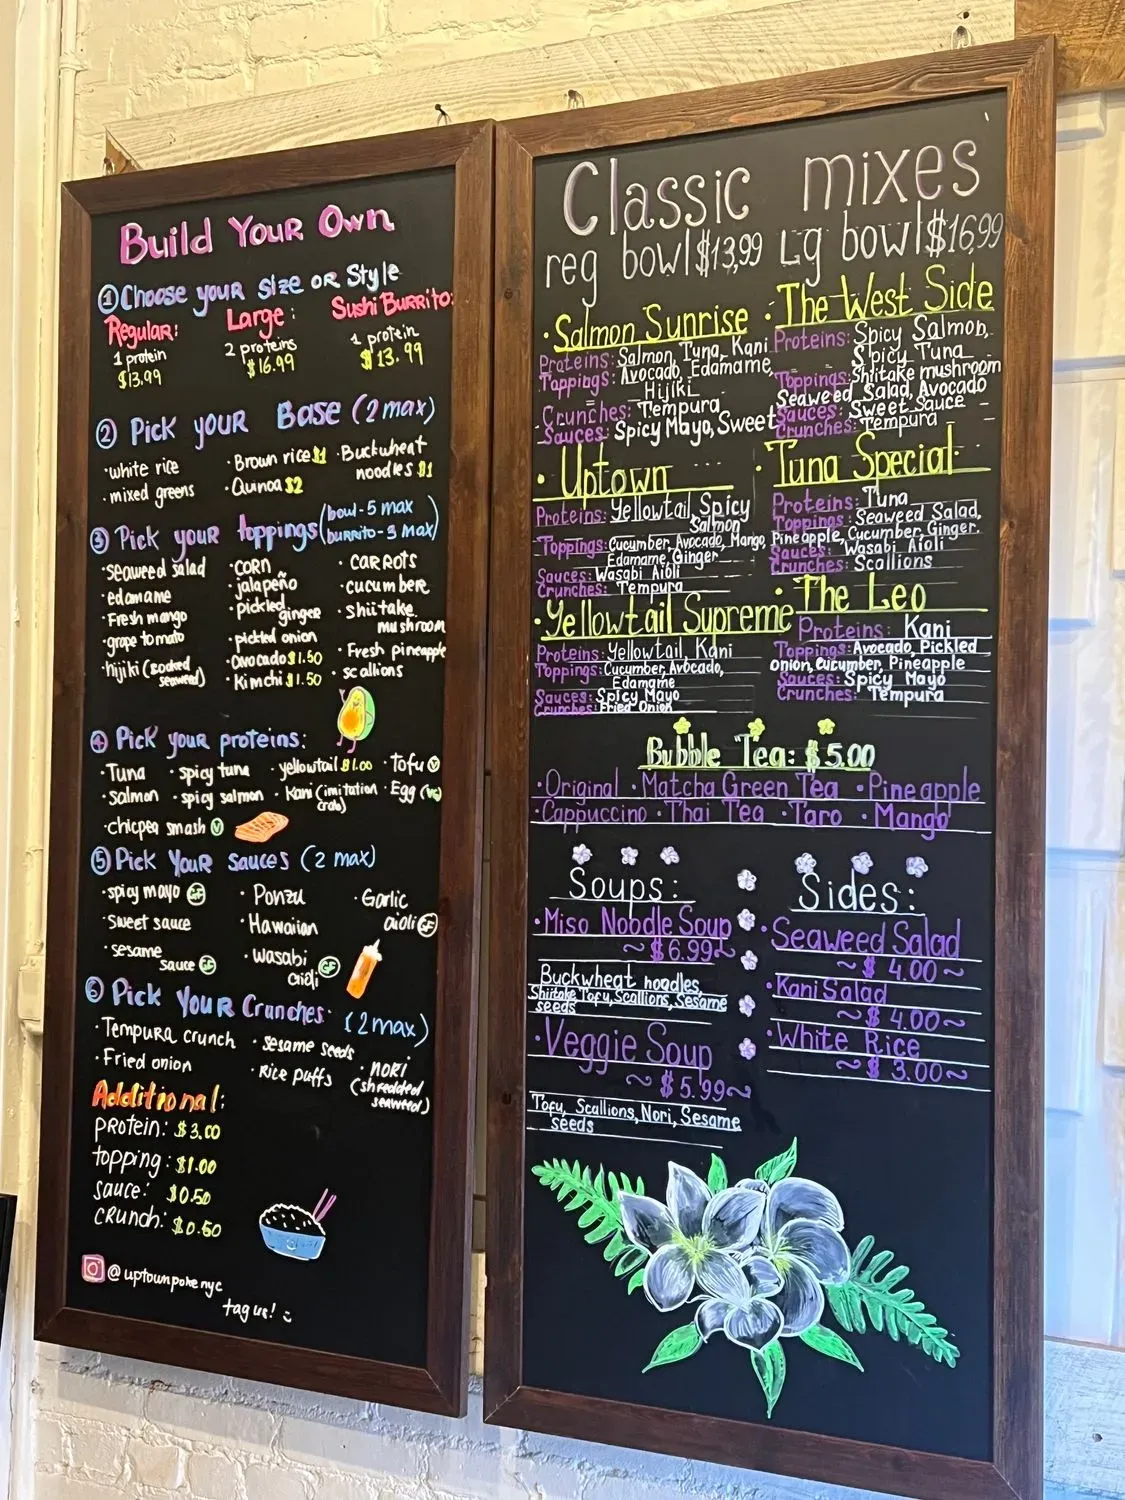 Build Your Own
① Choose your size or Style
Regular:
1 protein
$13.99
Large:
2 proteins
$16.99
Sushi Burrito:
1 protein
$13.99
② Pick your Base (2 max)
·white rice
·mixed greens
·Brown rice $1
·Quinoa $2
·Buckwheat
noodles $1
③ Pick your toppings (bowl-5 max
burrito-3 max)
·seaweed salad
·edamame
·Fresh mango
·grape tomato
·hijiki (cooked
seaweed)
·corn
·jalapeño
·pickled
ginger
·pickled onion
·avocado $1.50
·Kimchi $1.50
·carrots
·cucumber
·shiitake
mushroom
·Fresh pineapple
·scallions
④ Pick your proteins:
·Tuna
·spicy tuna
·yellowtail $1.00
·Tofu V
·salmon
·spicy salmon
·Kani (imitation
crab)
·Egg (VG)
·chicpea smash V
⑤ Pick your sauces (2 max)
·spicy mayo GF
·sweet sauce
·sesame
sauce GF
·Ponzu
·Hawaiian
·wasabi
aioli GF
·Garlic
aioli GF
⑥ Pick your Crunches: (2 max)
·Tempura crunch
·Fried onion
·sesame seeds
·Rice puffs
·nori
(shredded
seaweed)
Additional:
protein: $3.00
topping: $1.00
sauce: $0.50
crunch: $0.50
@uptownpokenyc
tag us!
Classic mixes
reg bowl $13,99 Lg bowl $16,99
·Salmon Sunrise
Proteins: Salmon, Tuna, Kani
Toppings: Avocado, Edamame,
Hijiki
Crunches: Tempura
Sauces: Spicy Mayo, Sweet
·The West Side
Proteins: Spicy Salmon,
Spicy Tuna
Toppings: Shiitake mushroom
Seaweed Salad, Avocado
Sauces: Sweet Sauce
Crunches: Tempura
·Uptown
Proteins: Yellowtail, Spicy
Salmon
Toppings: Cucumber, Avocado, Mango,
Edamame, Ginger
Sauces: Wasabi Aioli
Crunches: Tempura
·Tuna Special
Proteins: Tuna
Toppings: Seaweed Salad,
Pineapple, Cucumber, Ginger.
Sauces: Wasabi Aioli
Crunches: Scallions
·Yellowtail Supreme
Proteins: Yellowtail, Kani
Toppings: Cucumber, Avocado,
Edamame
Sauces: Spicy Mayo
Crunches: Fried Onion
·The Leo
Proteins: Kani
Toppings: Avocado, Pickled
onion, Cucumber, Pineapple
Sauces: Spicy Mayo
Crunches: Tempura
Bubble Tea: $5.00
·Original ·Matcha Green Tea ·Pineapple
·Cappuccino ·Thai Tea ·Taro ·Mango
Soups:
·Miso Noodle Soup
~$6.99~
Buckwheat noodles,
Shiitake Tofu, Scallions, Sesame
seeds
·Veggie Soup
~$5.99~
Tofu, Scallions, Nori, Sesame
seeds
Sides:
·Seaweed Salad
~$4.00~
·Kani Salad
~$4.00~
·White Rice
~$3.00~